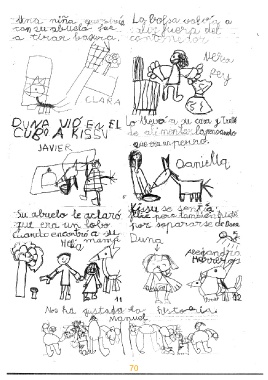 Una niña, que vivía
con su abuelo fue
a tirar basura.
CLARA
La bolsa volvía a
salir fuera del
contenedor
Nerea
Pey
DUNA VIÓ EN EL
CUBO A KISSU
JAVIER
Lo llevan a su casa y trate
de alimentarlo pensando
que era un perro.
Daniella
Su abuelo le aclaró
que era un lobo
cuando encontró a su
mamá
11
Kissu se sentía
feliz pero también triste
por separarse de Duna
Duna
Alejandra
Herrero
12
Nos ha gustado la historia
Manuel
70